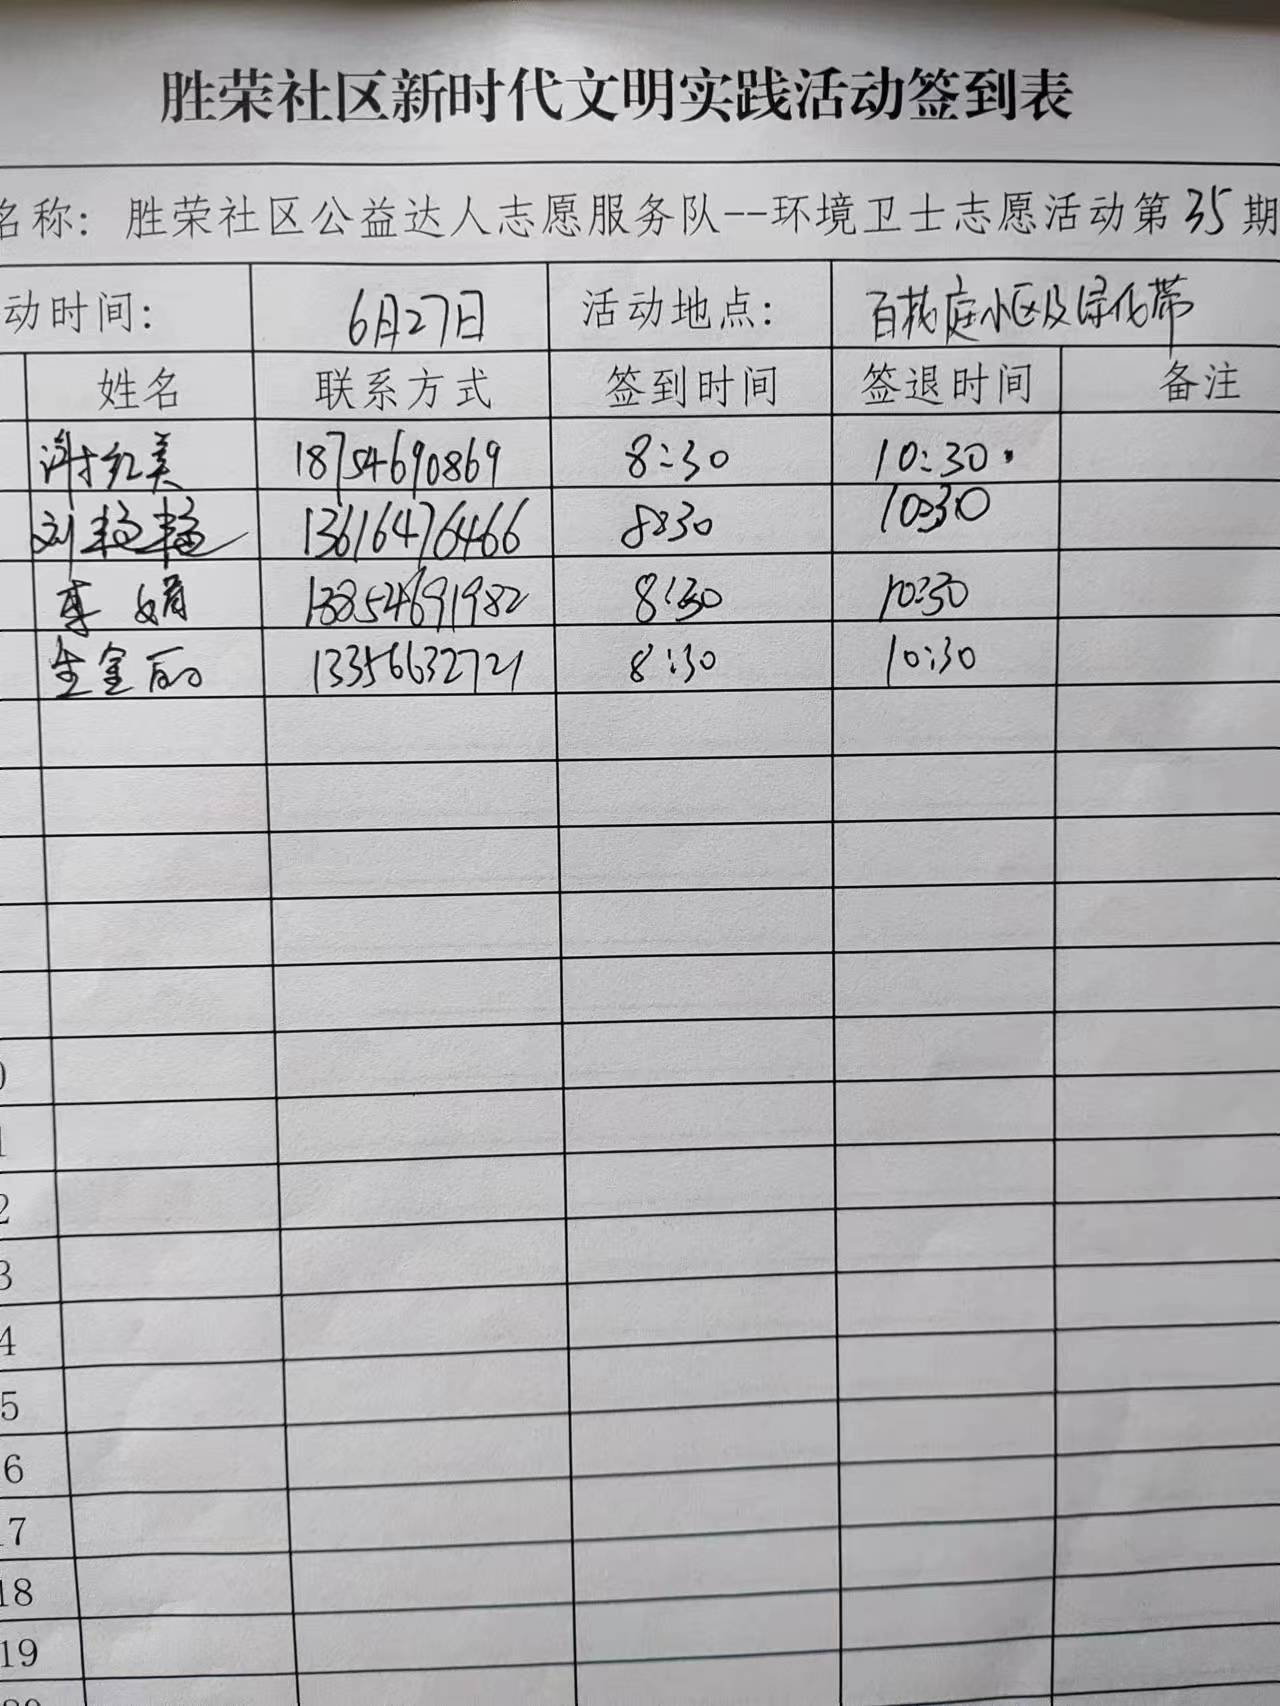 胜荣社区新时代文明实践活动签到表
名称：胜荣社区公益达人志愿服务队--环境卫士志愿活动第35期
动时间： 6月27日 活动地点： 小区及绿化带
姓名 联系方式 签到时间 签退时间 备注
谢红美 18754690869 8:30 10:30.
刘艳艳 13616476466 8:30 10:30
李娟 13854691982 8:30 10:30
生金丽 13356632721 8:30 10:30
0
1
2
3
4
5
6
17
18
19
20